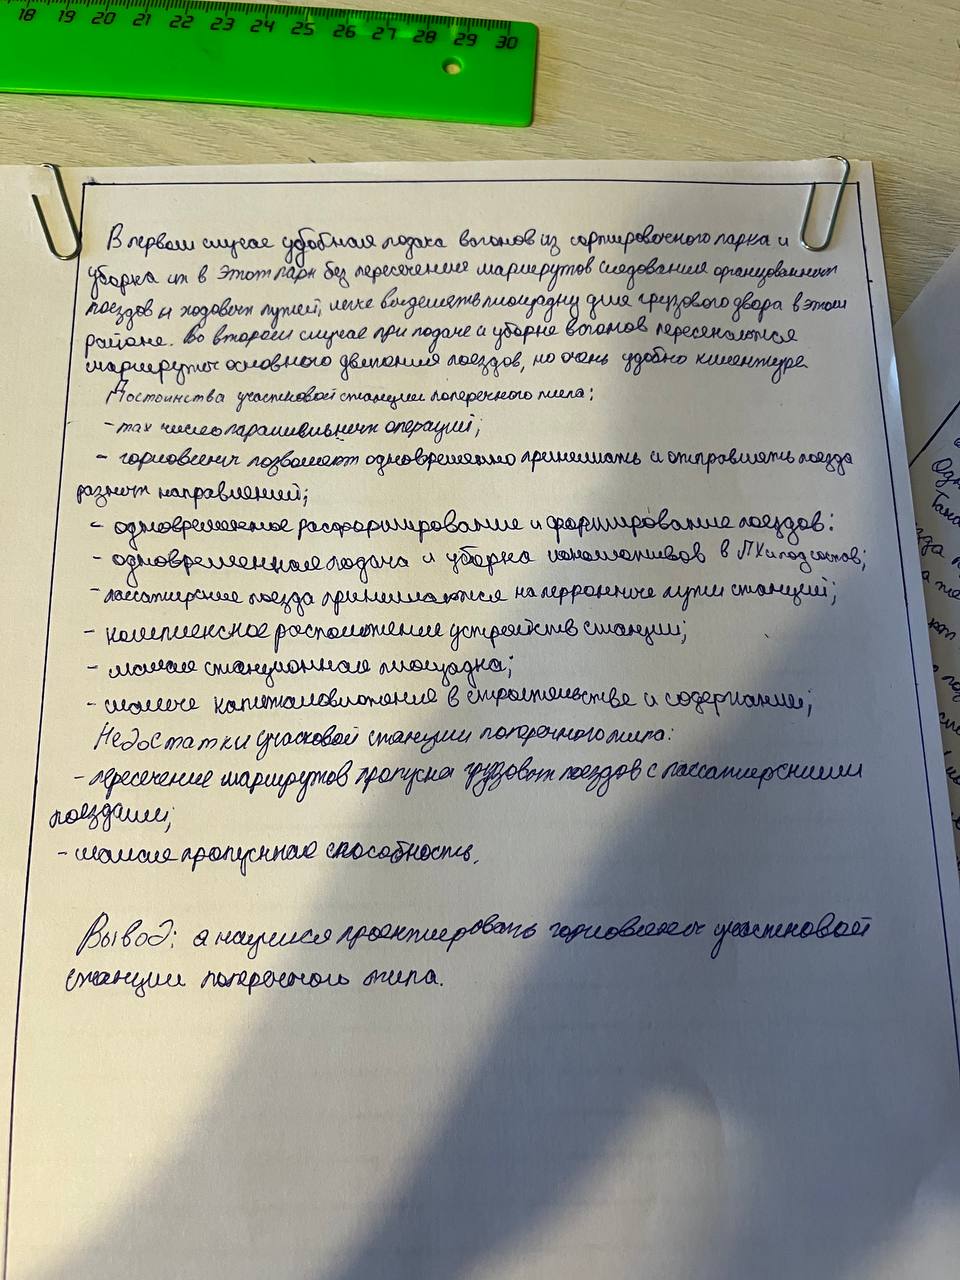 18 19 20 21 22 23 24 25 26 27 28 29 30
В первом случае удобная подача вагонов из сортировочного парка и
уборка их в этот парк без пересечения маршрутов следования организованных
поездов и ходовых путей, легче выделять площадку для грузового двора в этом
районе. Во втором случае при подаче и уборке вагонов пересекаются
маршруты основного движения поездов, но очень удобно клиентуре.
Достоинства участковой станции поперечного типа:
- max число параллельных операций;
- горловины позволяют одновременно принимать и отправлять поезда
разных направлений;
- одновременное расформирование и формирование поездов:
- одновременная подача и уборка локомотивов в ЛХ и под состав;
- пассажирские поезда принимаются на перронные пути станций;
- комплексное расположение устройств станции;
- малая станционная площадка;
- малые капиталовложения в строительстве и содержании;
Недостатки участковой станции поперечного типа:
- пересечение маршрутов пропуска грузовых поездов с пассажирскими
поездами;
- малая пропускная способность.
Вывод: я научился проектировать горловины участковой
станции поперечного типа.